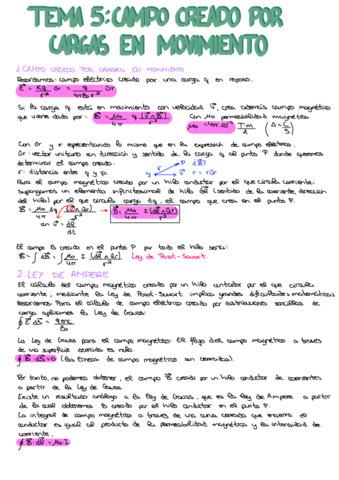 TEMA 5: CAMPO CREADO POR
CARGAS EN MOVIMIENTO
1. CAMPO CREADO POR CARGAS EN MOVIMIENTO
Recordamos: campo eléctrico creado por una carga q en reposo.
Si la carga q está en movimiento con velocidad v, crea además campo magnético
que viene dado por:
Con μo permeabilidad magnética
Con ûr y r representando lo mismo que en la expresión de campo eléctrico.
ûr: vector unitario en dirección y sentido de la carga q al punto P donde queremos
determinar el campo creado.
r: distancia entre q y p.
Para el campo magnético creado por un hilo conductor por el que circula corriente:
supongamos un elemento infinitesimal de hilo dl (sentido de la corriente, dirección
del hilo) por el que circula carga dq, el campo que crea en el punto P.
El campo B creado en el punto P por todo el hilo sería:
Ley de Biot-Savart.
2. LEY DE AMPERE
El cálculo del campo magnético creado por un hilo cortador por el que circula
corriente, mediante la Ley de Biot-Savart implica grandes dificultades matemáticas
Recordemos: Para el cálculo de campo eléctrico creado por distribuciones sencillas de
carga aplicamos la Ley de Gauss:
La Ley de Gauss para el campo magnético: El flujo del campo magnético a través
de una superficie cerrada es nulo.
∮ B ds = 0 (las líneas de campo magnético son cerradas).
Por tanto, no podemos obtener el campo B creado por un hilo conductor de corrientes
a partir de la Ley de Gauss.
Existe un resultado análogo a la Ley de Gauss, que es la Ley de Ampere a partir
de la cual obtenemos B creado por el hilo conductor en el punto P.
La integral de campo magnético a través de una curva cerrada que encierra el
conductor es igual al producto de la permeabilidad magnética y la intensidad de
corriente.
∮ B dl = μo I